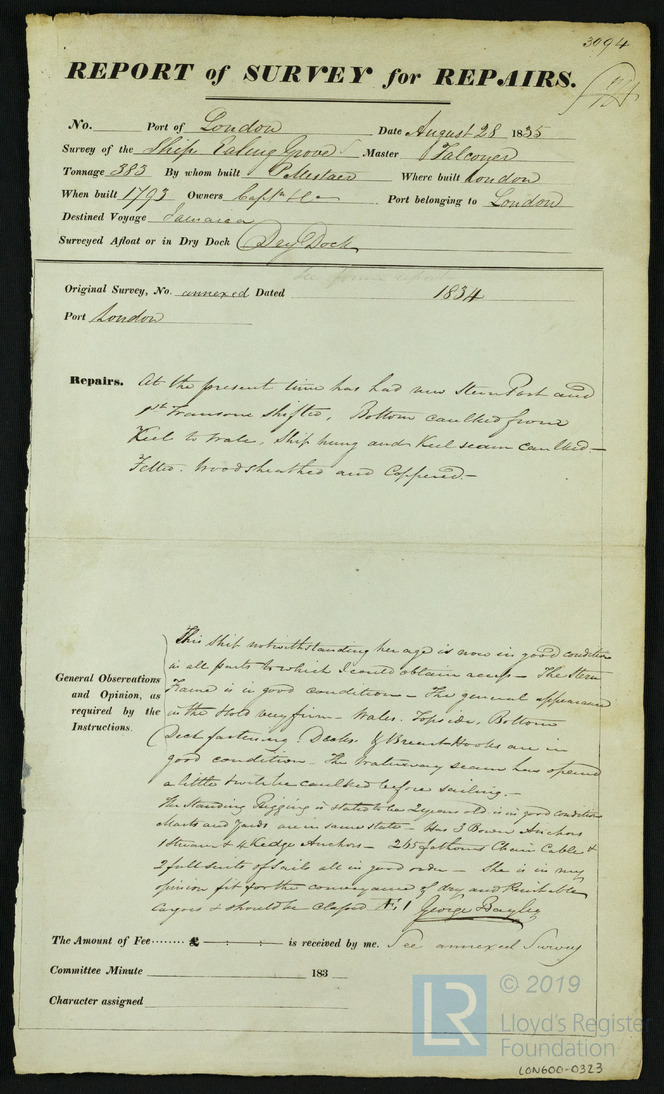 3094
REPORT of SURVEY for REPAIRS.
No. Port of London Date August 28 1835
Survey of the Ship Ealing Grove Master Falconer
Tonnage 383 By whom built P Mestaer Where built London
When built 1793 Owners Captn & Co Port belonging to London
Destined Voyage Jamaica
Surveyed Afloat or in Dry Dock Dry Dock
Original Survey, No. annexed Dated 1834
Port London
Repairs. At the present time has had new Stern Post and
1st Transom shifted, Bottom caulked from
Keel to Wale, Ship hung and Keel seam caulked —
Felted. Woodsheathed and Coppered —
General Observations and Opinion, as required by the Instructions.
This ship notwithstanding her age is now in good condition
in all parts to which I could obtain access — The Stern
Frame is in good condition — The general appearance
in the Hold very firm — Wales. Topsides, Bottom
Deck fastening. Decks. & Breast Hooks are in
good condition — The Waterway seam has opened
a little & will be caulked before sailing. —
The Standing Rigging is stated to be 2 years old is in good condition
Masts and Yards are in same state — Has 3 Bower Anchors
1 Stream & 4 Kedge Anchors — 265 fathoms Chain Cable &
2 full suits of Sails all in good order — She is in my
opinion fit for the conveyance of dry and Perishable
Cargoes & should be Classed Æ 1 George Bayley
The Amount of Fee ........ £ — : — : — is received by me. See annexed Survey
Committee Minute 183
Character assigned
LR
© 2019
Lloyd's Register
Foundation
LON600-0323